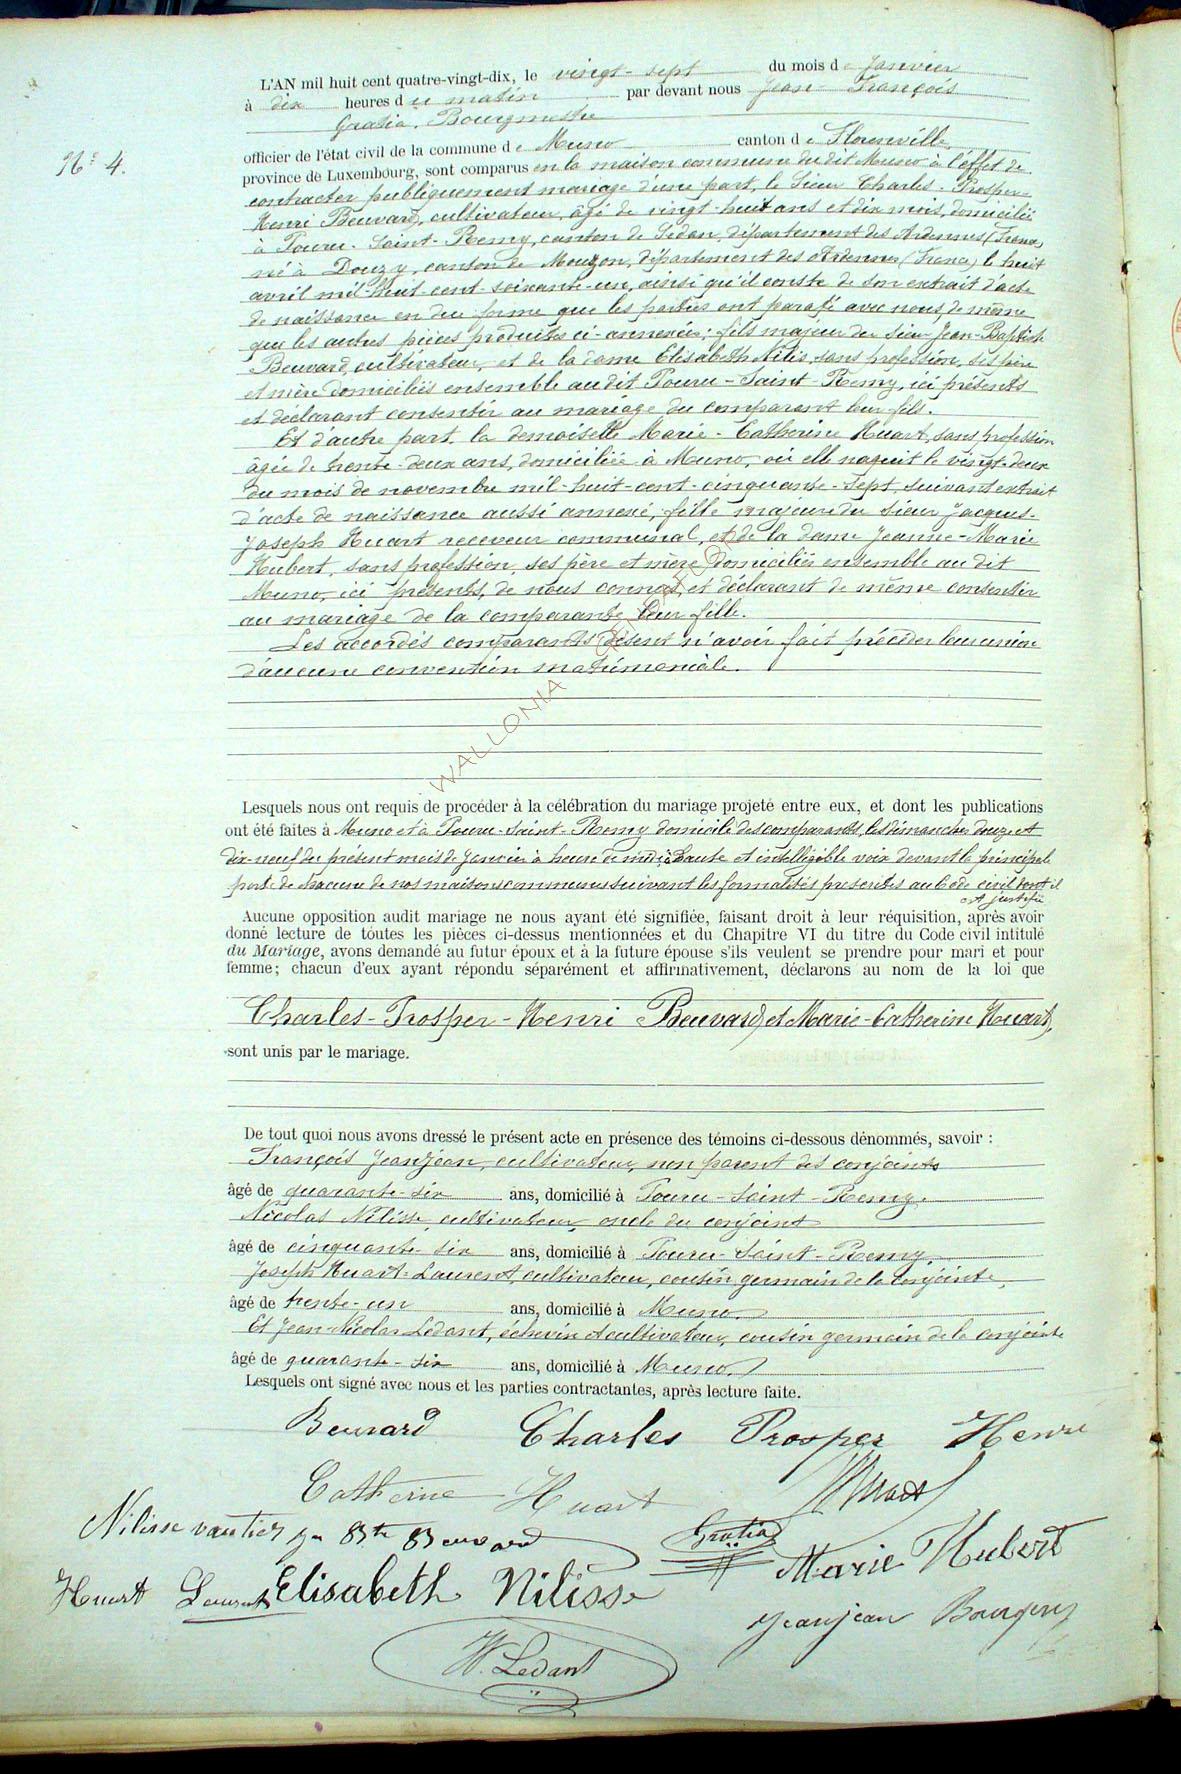 L'AN mil huit cent quatre-vingt-dix, le vingt-sept du mois de Janvier
à dix heures du matin par devant nous Jean-François
Gratia, Bourgmestre
officier de l'état civil de la commune de Muno canton de Florenville
N° 4.
province de Luxembourg, sont comparus en la maison commune du dit Muno à l'effet de
contracter publiquement mariage d'une part, le Sieur Charles-Prosper-
Henri Beuvard, cultivateur, âgé de vingt-huit ans et dix mois, domicilié
à Pouru-Saint-Remy, canton de Sedan, département des Ardennes (France)
né à Douzy, canton de Mouzon, département des Ardennes (France) le huit
avril mil-huit-cent-soixante-un, ainsi qu'il conste de son extrait d'acte
de naissance en due forme que les parties ont parafé avec nous de même
que les autres pièces produites ci-annexées; fils majeur du sieur Jean-Baptiste
Beuvard, cultivateur, et de la dame Elisabeth Nilis, sans profession, ses père
et mère domiciliés ensemble au dit Pouru-Saint-Remy, ici présents
et déclarant consentir au mariage du comparant leur fils.
Et d'autre part, la demoiselle Marie-Catherine Huart, sans profession
âgée de trente-deux ans, domiciliée à Muno, où elle naquit le vingt-deux
du mois de novembre mil-huit-cent-cinquante-sept, suivant extrait
d'acte de naissance aussi annexé, fille majeure du sieur Jacques-
Joseph Huart receveur communal, et de la dame Jeanne-Marie
Hubert, sans profession, ses père et mère domiciliés ensemble au dit
Muno, ici présents, de nous connus, et déclarant de même consentir
au mariage de la comparante leur fille.
Les accordés comparants disent n'avoir fait précéder leur union
d'aucune convention matrimoniale.
WALLONIA
Lesquels nous ont requis de procéder à la célébration du mariage projeté entre eux, et dont les publications
ont été faites à Muno et à Pouru-Saint-Remy domicile des comparants, les dimanches douze et
dix-neuf du présent mois de Janvier à heure de midi à haute et intelligible voix devant la principale
porte de chacune de nos maisons communes suivant les formalités prescrites au Code civil dont il
est justifié
Aucune opposition audit mariage ne nous ayant été signifiée, faisant droit à leur réquisition, après avoir
donné lecture de toutes les pièces ci-dessus mentionnées et du Chapitre VI du titre du Code civil intitulé
du Mariage, avons demandé au futur époux et à la future épouse s'ils veulent se prendre pour mari et pour
femme; chacun d'eux ayant répondu séparément et affirmativement, déclarons au nom de la loi que
Charles-Prosper-Henri Beuvard et Marie-Catherine Huart,
sont unis par le mariage.
De tout quoi nous avons dressé le présent acte en présence des témoins ci-dessous dénommés, savoir :
François Jeanjean, cultivateur, non parent des conjoints
âgé de quarante-six ans, domicilié à Pouru-Saint-Remy.
Nicolas Nilisse, cultivateur, oncle du conjoint
âgé de cinquante-six ans, domicilié à Pouru-Saint-Remy,
Joseph Huart-Laurent, cultivateur, cousin germain de la conjointe,
âgé de trente-un ans, domicilié à Muno,
Et Jean-Nicolas Ledant, échevin et cultivateur, cousin germain de la conjointe
âgé de quarante-six ans, domicilié à Muno
Lesquels ont signé avec nous et les parties contractantes, après lecture faite.
Beuvard Charles Prosper Henri
Catherine Huart Huart
Nilisse vautier Jn Bte Beuvard Gratia Marie Hubert
Huart Laurent Elisabeth Nilisse Jeanjean
N. Ledant